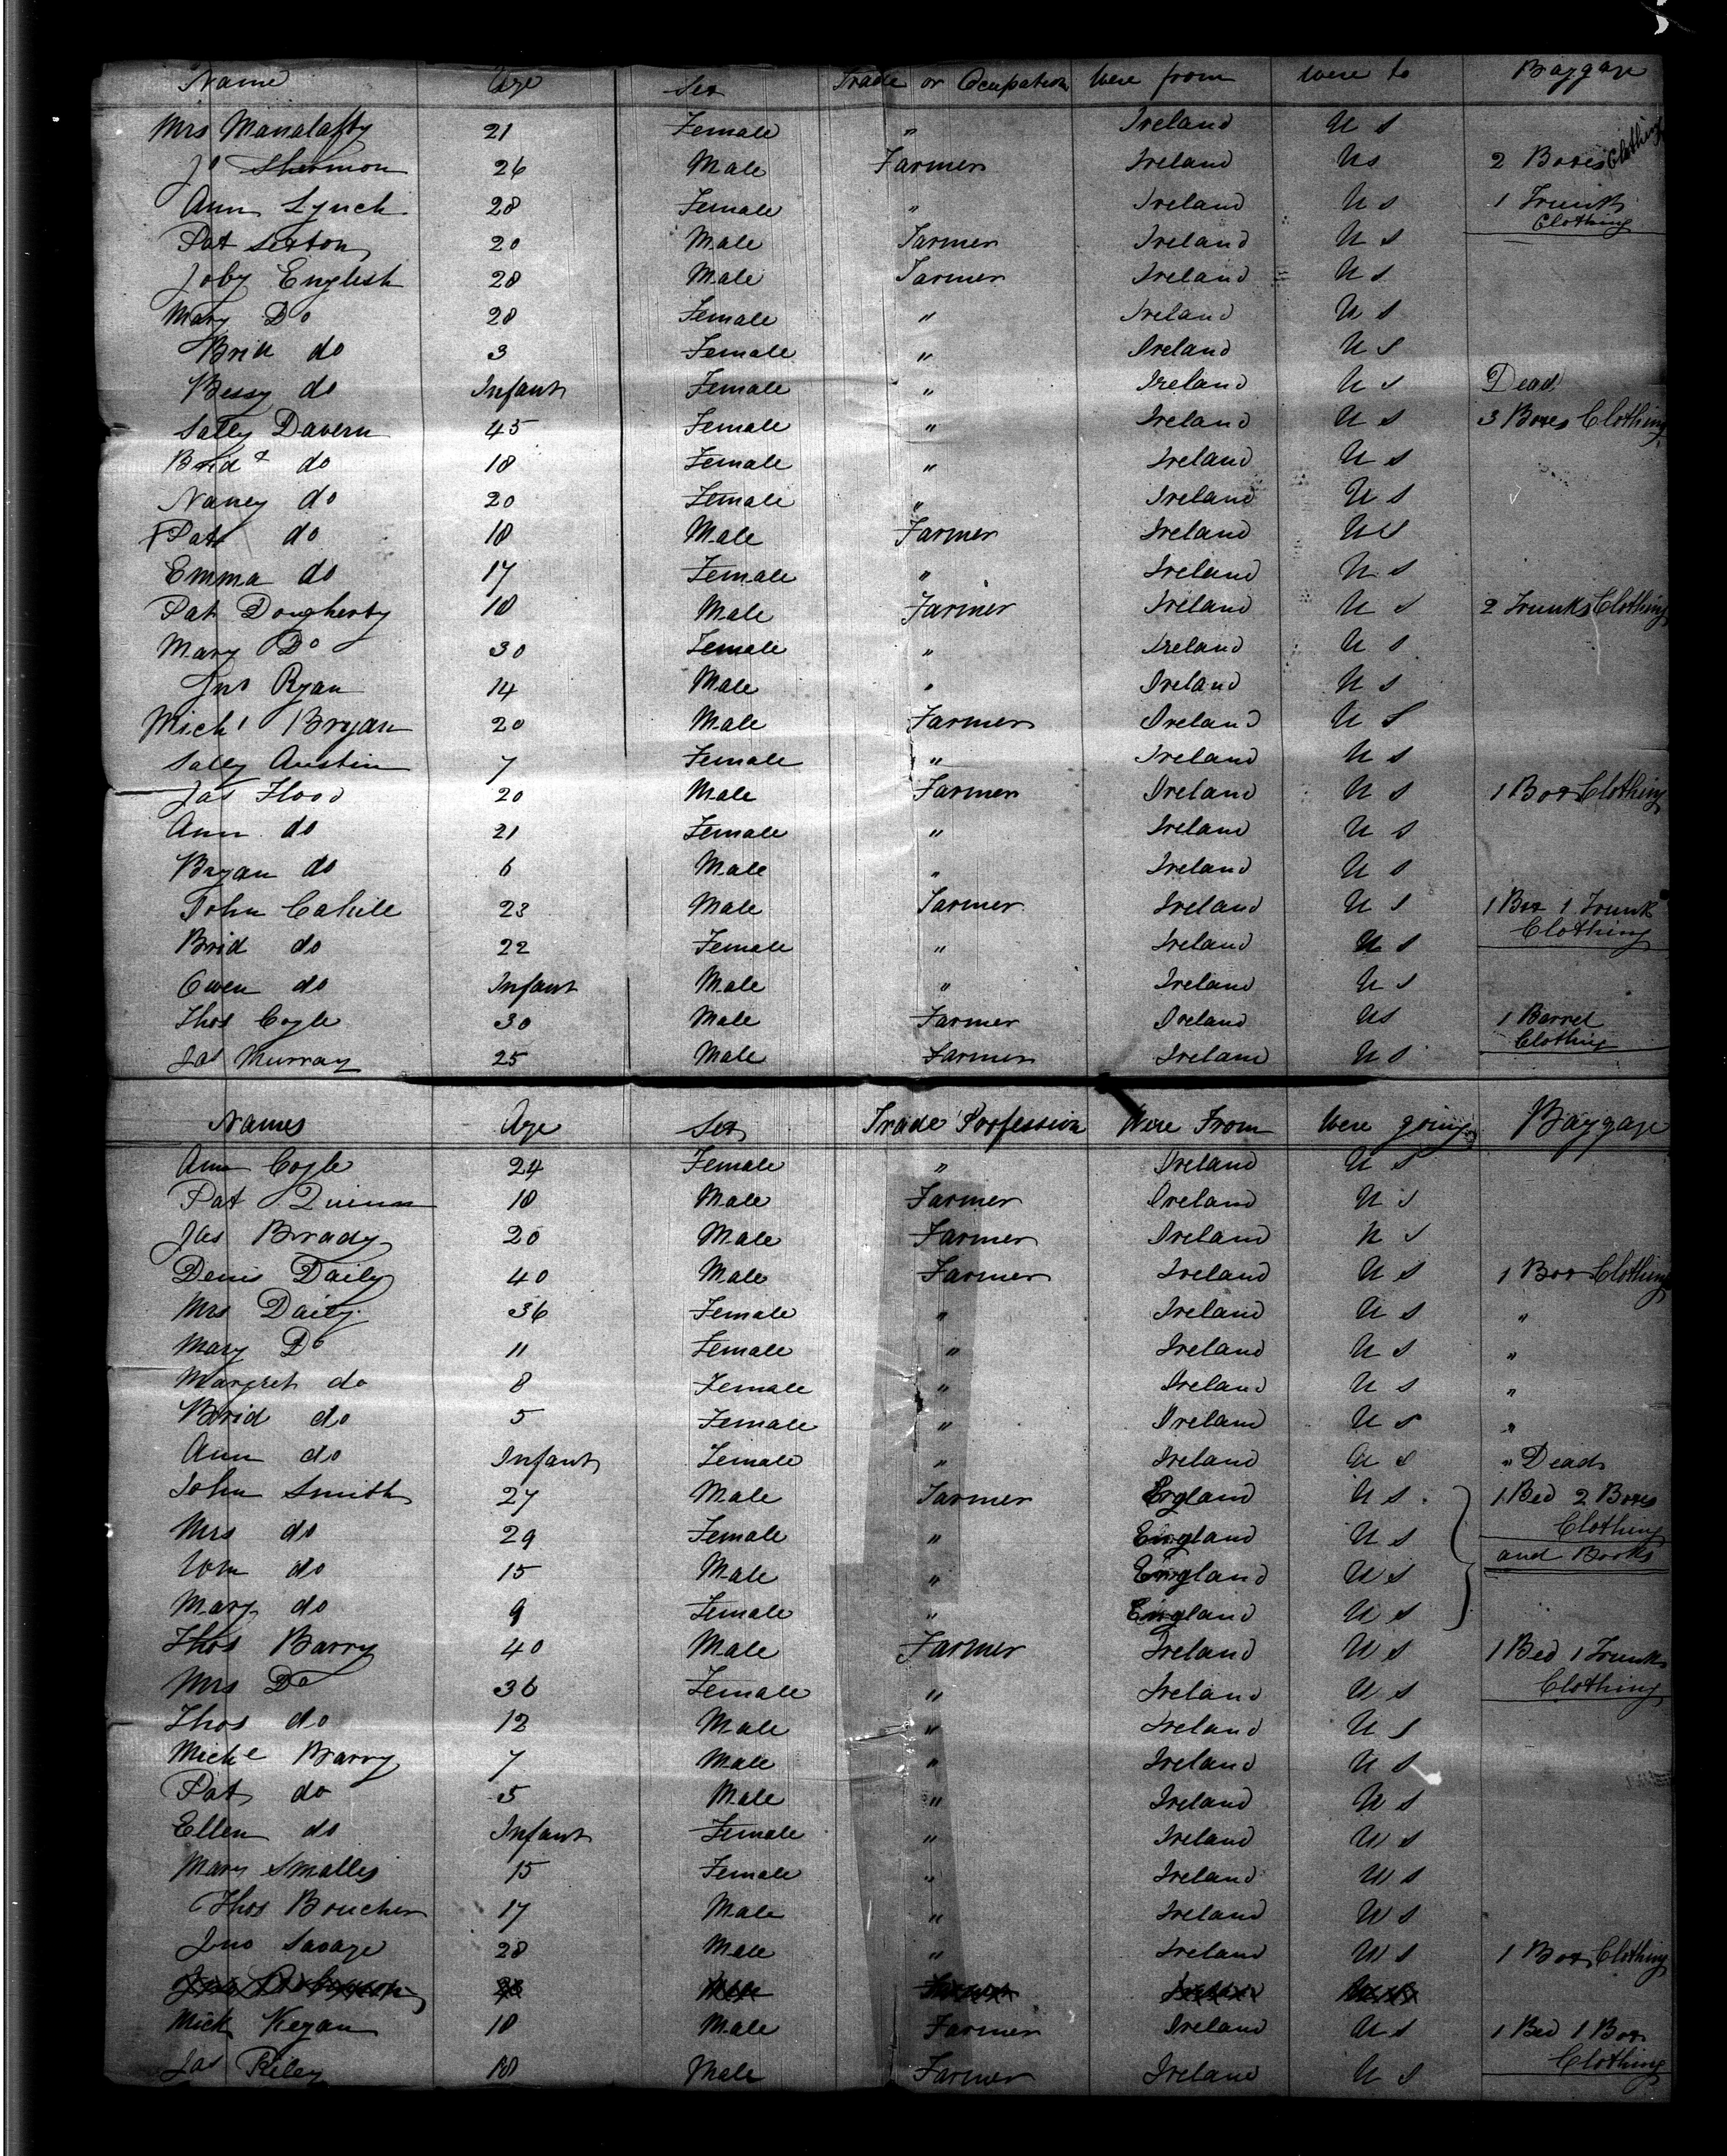 Name Age Sex Trade or Ocupation Were from Were to Baggage
Mrs Manalafty 21 Female " Ireland U S
Jo Shermon 26 Male Farmer Ireland US 2 Boxes Clothing
Ann Lynch 28 Female " Ireland U S 1 Trunk
Clothing
Pat Sexton 20 Male Farmer Ireland U S
Joby English 28 Male Farmer Ireland U S
Mary Do 28 Female " Ireland U S
Brid do 3 Female " Ireland U S
Bessy do Infant Female " Ireland U S Dead
Sally Davern 45 Female " Ireland U S 3 Boxes Clothing
Brid do 18 Female " Ireland U S
Nancy do 20 Female " Ireland U S
Pat do 18 Male Farmer Ireland U S
Emma do 17 Female " Ireland U S
Pat Dougherty 18 Male Farmer Ireland U S 2 Trunks Clothing
Mary Do 30 Female " Ireland U S
Jno Ryan 14 Male " Ireland U S
Michl Bryan 20 Male Farmer Ireland U S
Sally Austin 7 Female " Ireland U S
Jas Flood 20 Male Farmer Ireland U S 1 Box Clothing
Ann do 21 Female " Ireland U S
Bryan do 6 Male " Ireland U S
John Cahill 23 Male Farmer Ireland U S 1 Box 1 Trunk
Clothing
Brid do 22 Female " Ireland U S
Owen do Infant Male " Ireland U S
Thos Cogle 30 Male Farmer Ireland US 1 Barrel
Clothing
Jas Murray 25 Male Farmer Ireland U S
Names Age Sex Trade Porfession Were From Were going Baggage
Ann Cogle 24 Female " Ireland U S
Pat Quinn 18 Male Farmer Ireland U S
Jas Brady 20 Male Farmer Ireland U S
Denis Daily 40 Male Farmer Ireland U S 1 Box Clothing
Mrs Daily 36 Female " Ireland U S "
Mary Do 11 Female " Ireland U S "
Margret do 8 Female " Ireland U S "
Brid do 5 Female " Ireland U S "
Ann do Infant Female " Ireland U S " Dead
John Smith 27 Male Farmer England U S 1 Bed 2 Boxes
Clothing
Mrs do 29 Female " England U S
and Books
Wm do 15 Male " England U S
Mary do 9 Female " England U S
Thos Barry 40 Male Farmer Ireland U S 1 Bed 1 Trunk
Clothing
Mrs Do 36 Female " Ireland U S
Thos do 12 Male " Ireland U S
Michl Barry 7 Male " Ireland U S
Pat do 5 Male " Ireland U S
Ellen do Infant Female " Ireland U S
Mary Smalls 15 Female " Ireland U S
Thos Boucher 17 Male " Ireland U S
Jno Savage 28 Male " Ireland U S 1 Box Clothing
Mick Kegan 18 Male Farmer Ireland U S 1 Bed 1 Box
Clothing
Jas Riley 18 Male Farmer Ireland U S